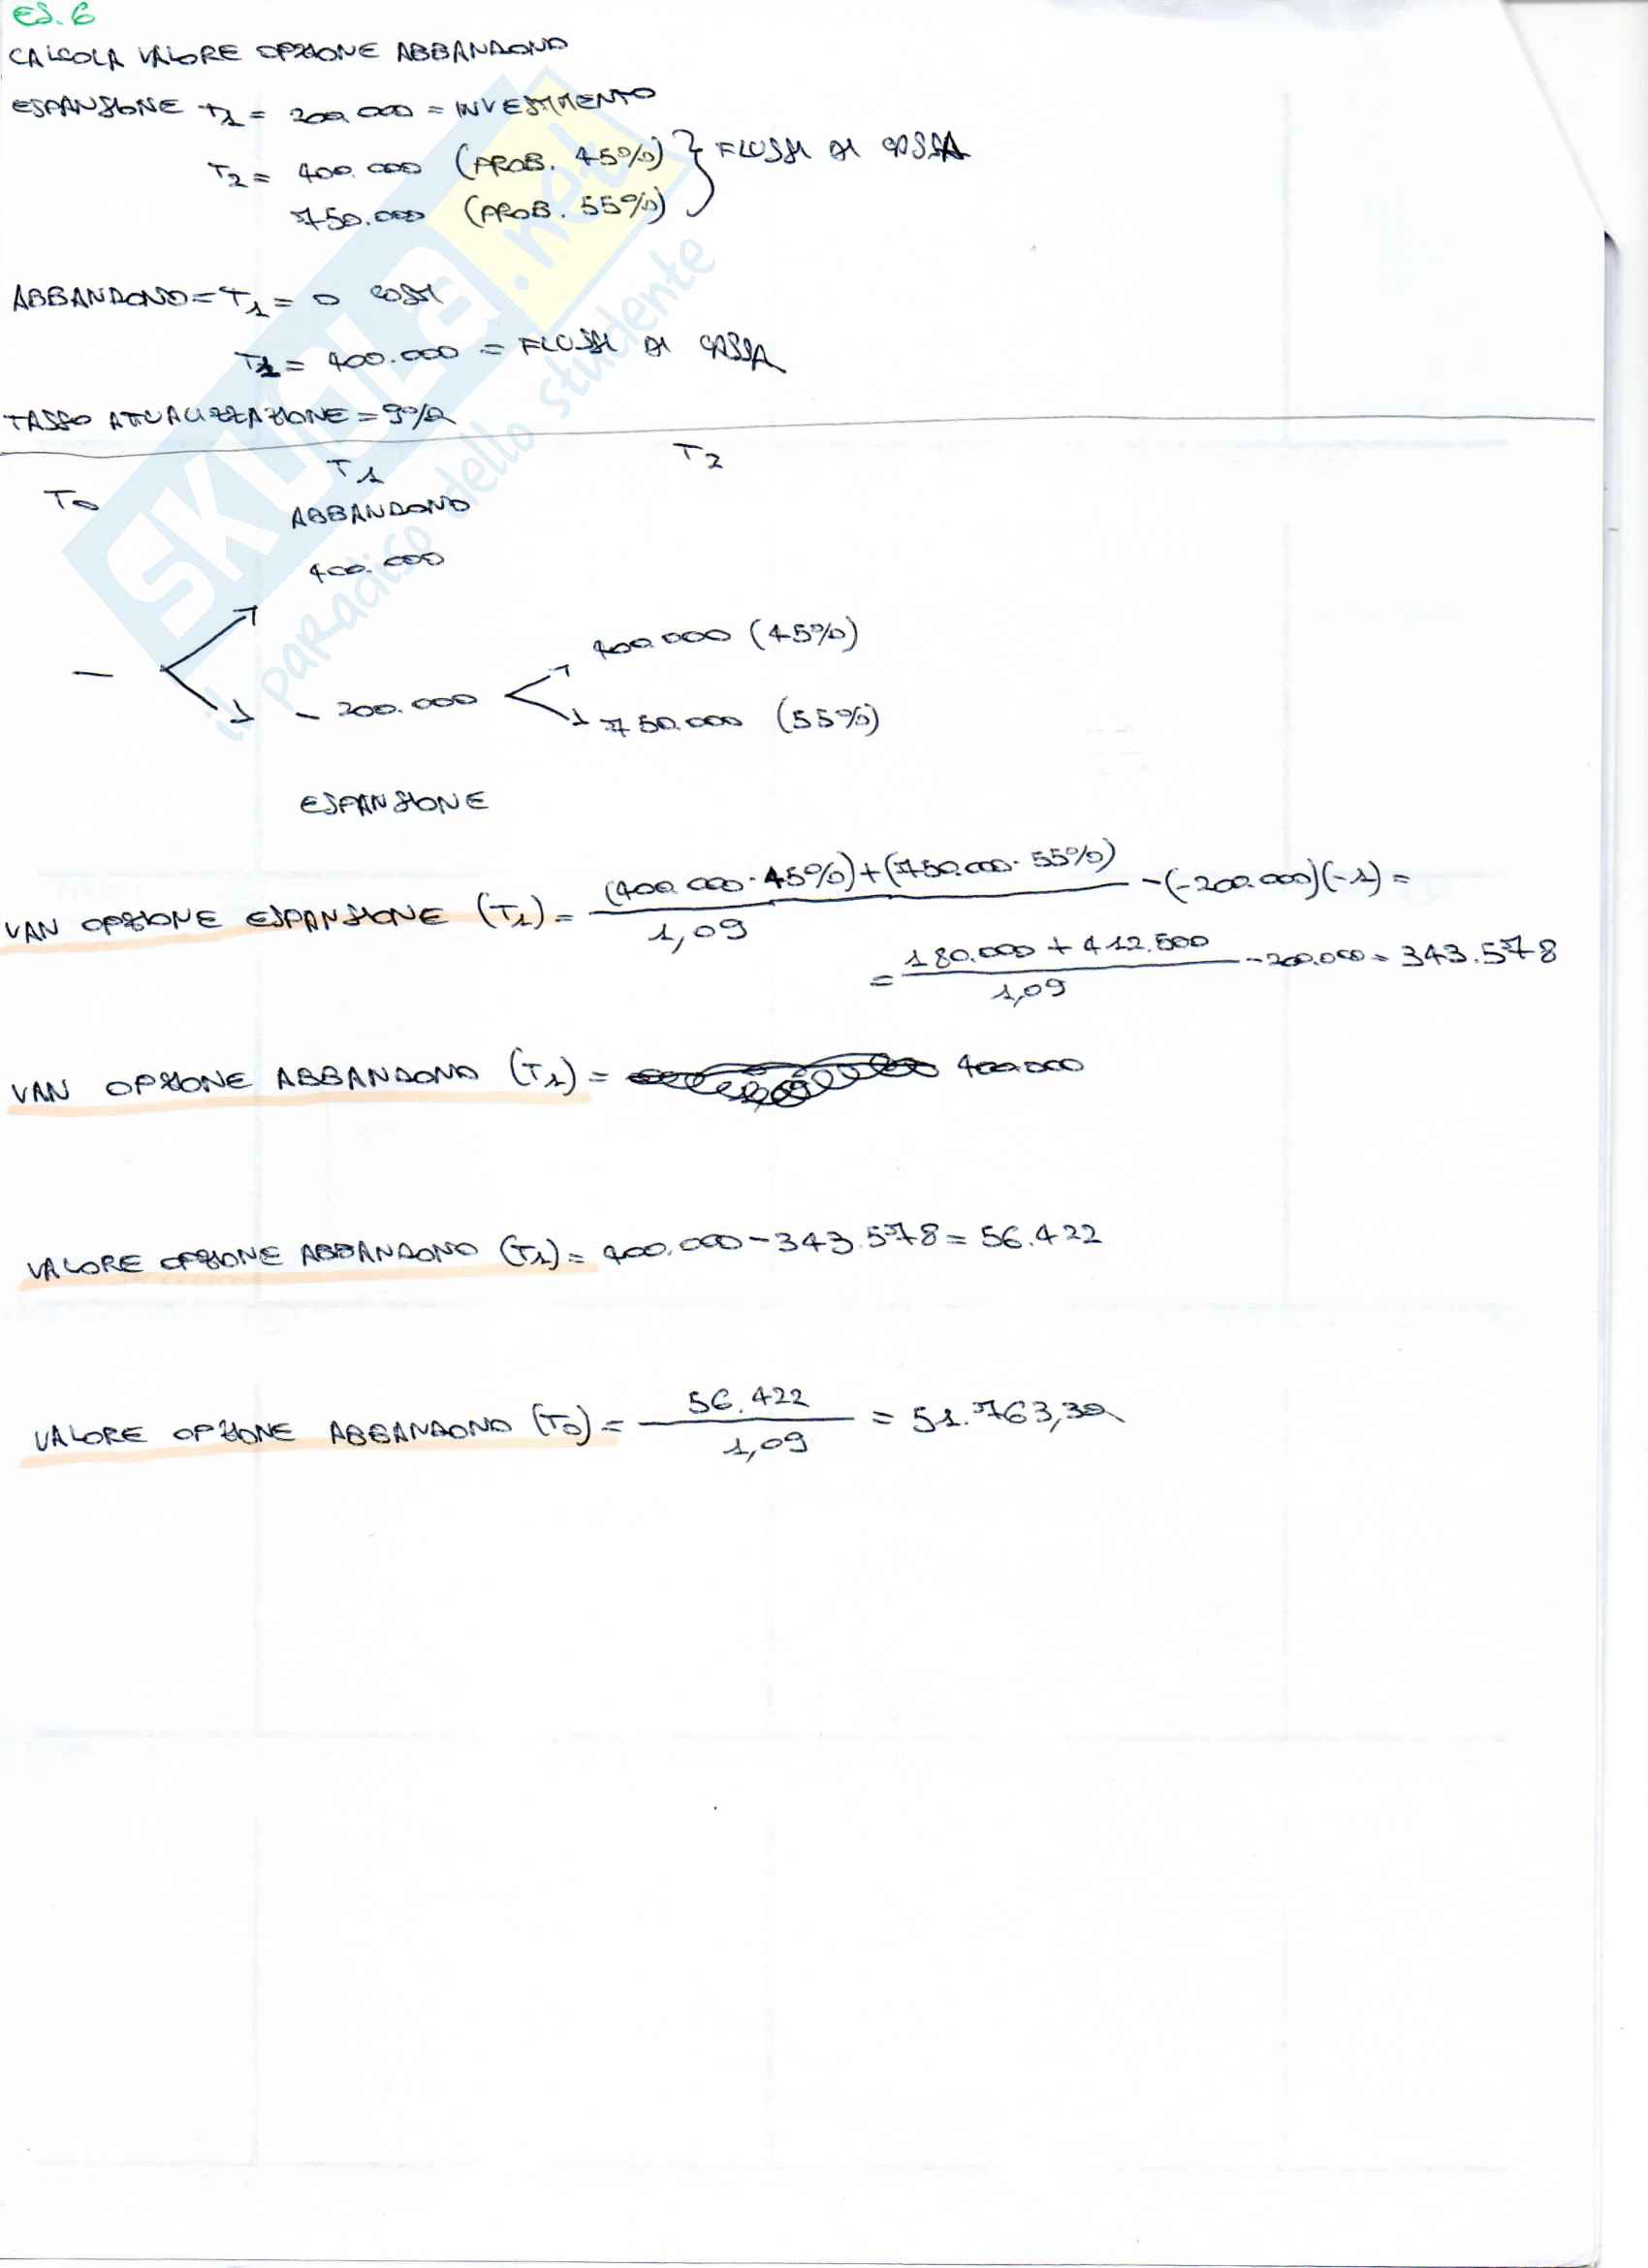 ES. 6
CALCOLA VALORE OPZIONE ABBANDONO
ESPANSIONE T1 = 200.000 = INVESTIMENTO
T2 = 400.000 (PROB. 45%) } FLUSSI DI CASSA
750.000 (PROB. 55%)
ABBANDONO = T1 = 0 COSTI
T1 = 400.000 = FLUSSI DI CASSA
TASSO ATTUALIZZAZIONE = 9%
T0 T1 T2
ABBANDONO
400.000
400.000 (45%)
— - 200.000
750.000 (55%)
ESPANSIONE
VAN OPZIONE ESPANSIONE (T1) = (400.000 · 45%) + (750.000 · 55%) / 1,09 - (-200.000)(-1) =
= 180.000 + 412.500 / 1,09 - 200.000 = 343.578
VAN OPZIONE ABBANDONO (T1) = 400.000
VALORE OPZIONE ABBANDONO (T1) = 400.000 - 343.578 = 56.422
VALORE OPZIONE ABBANDONO (T0) = 56.422 / 1,09 = 51.763,30
SKUOLA.net
il paradiso dello studente